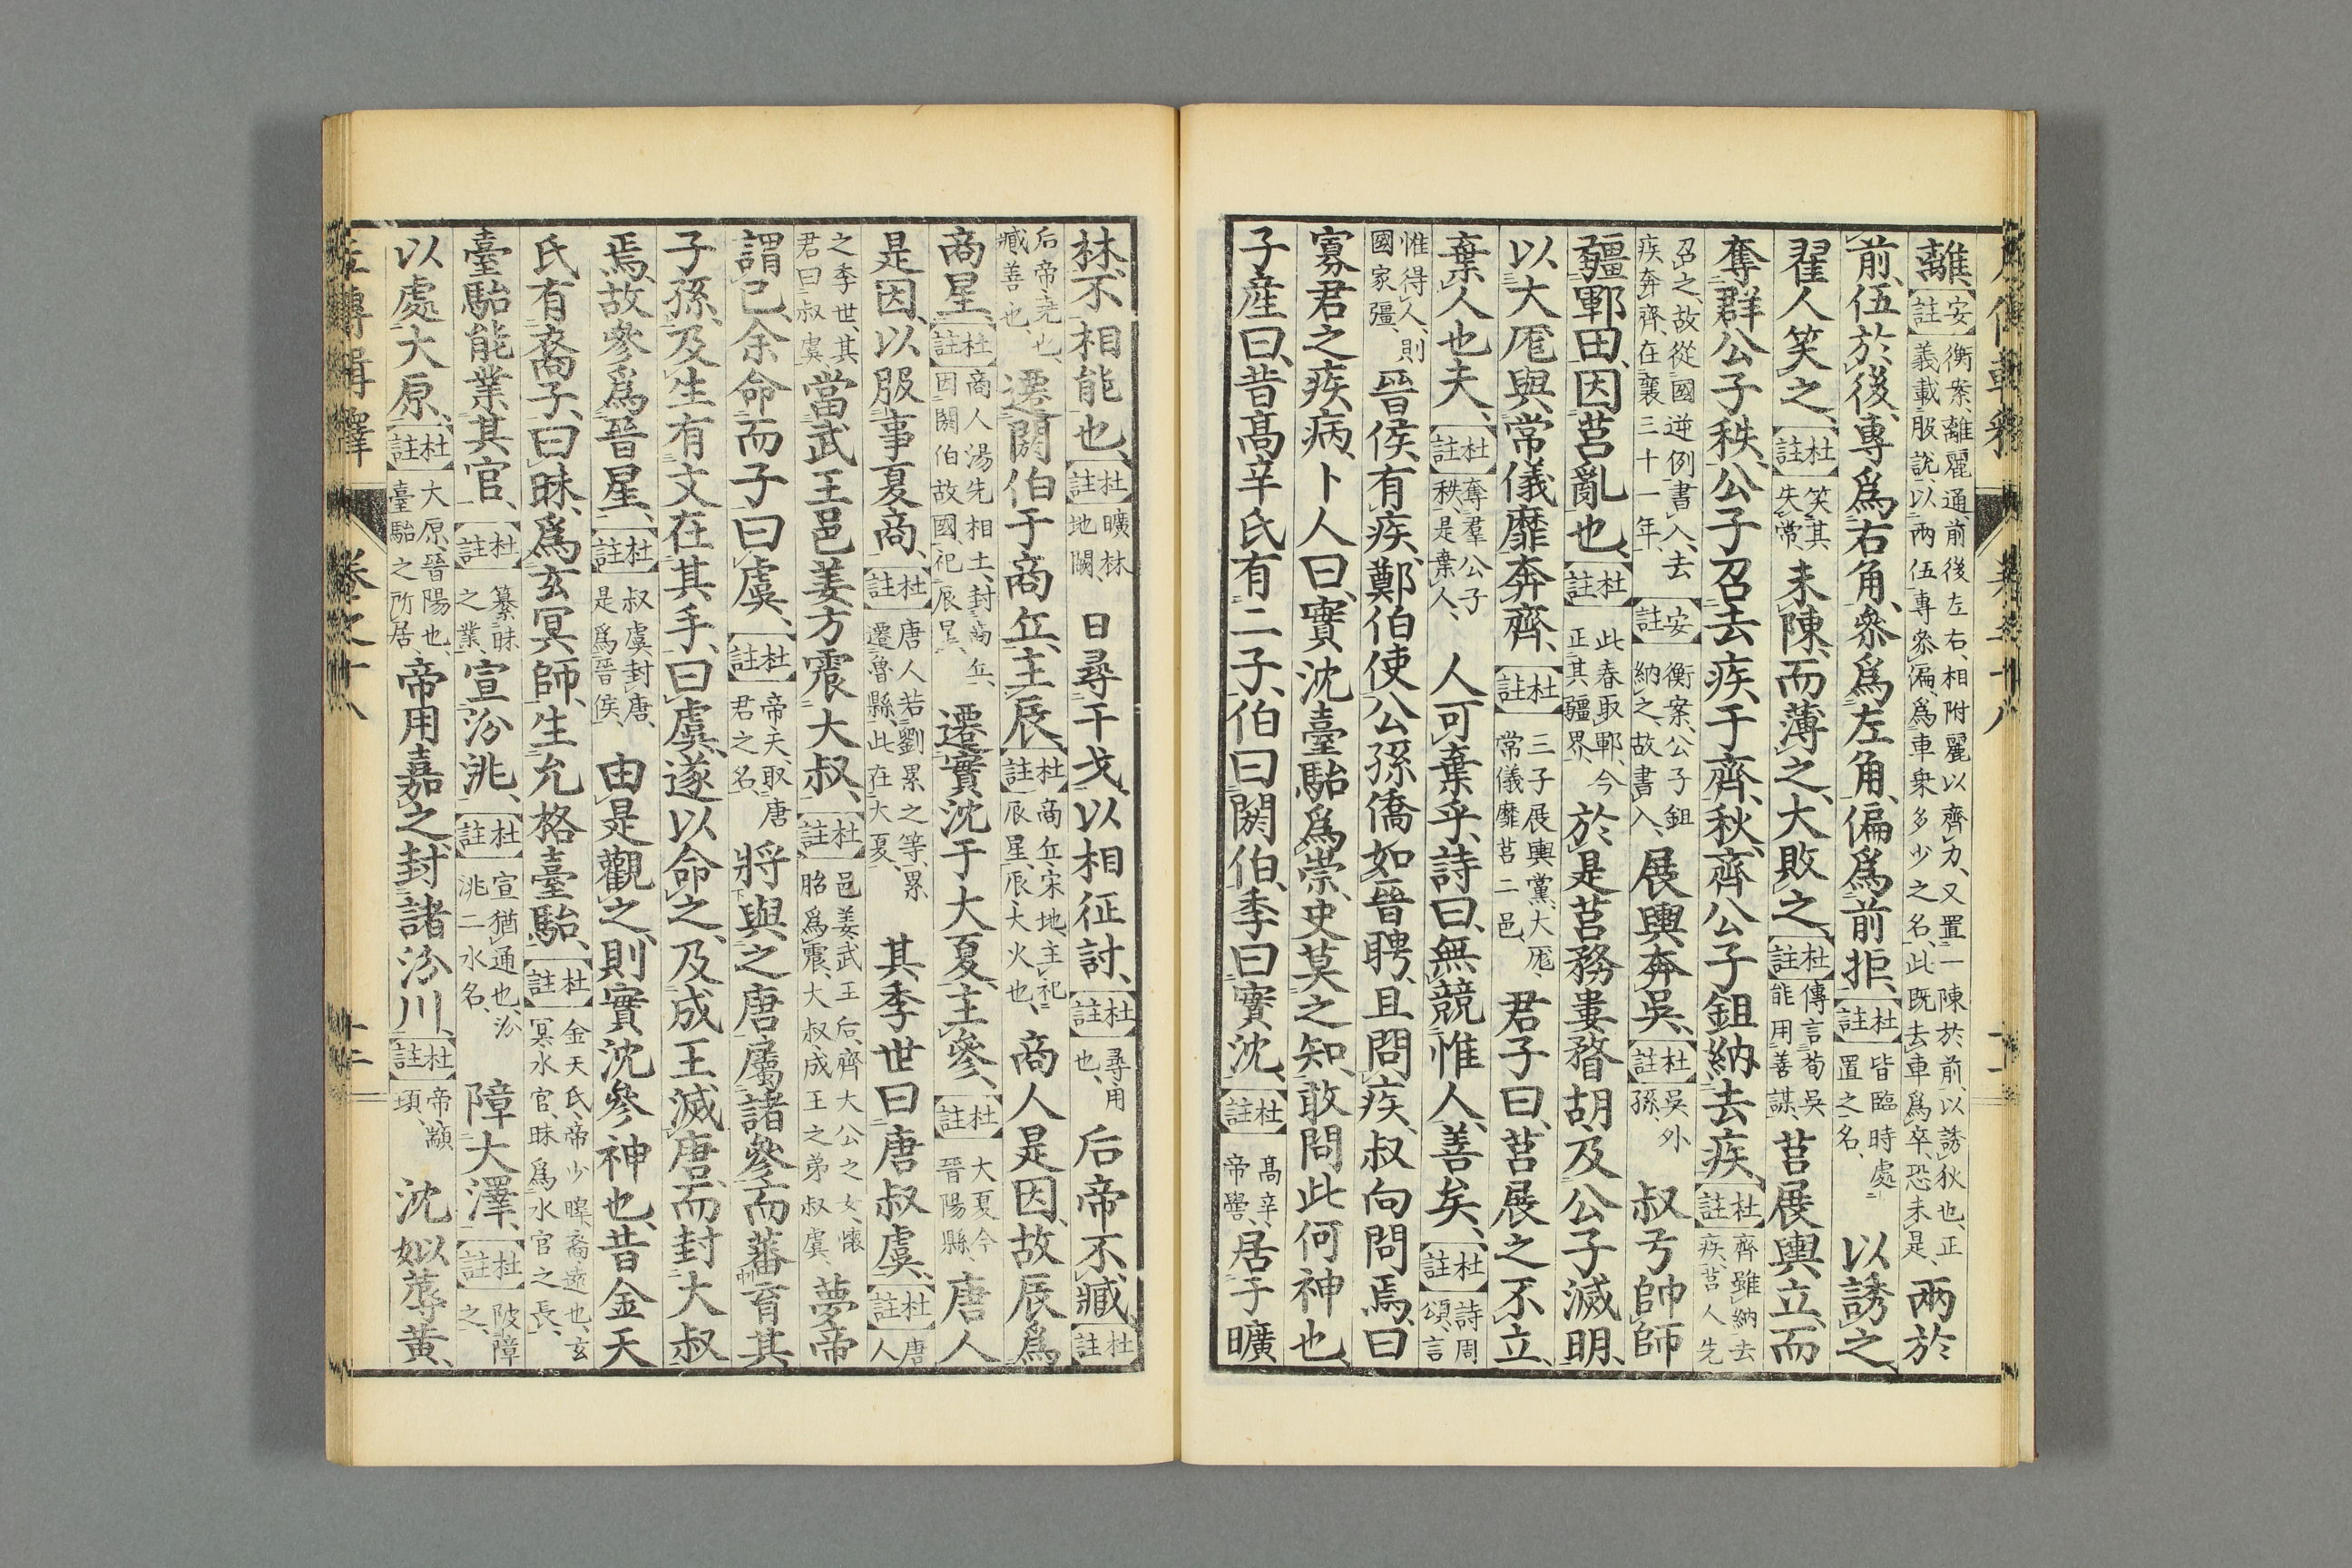 離、【安註】衡案、離麗通、前後左右、相附麗以齊力、又置一陳於前、以誘狄也、正義載服說、以兩伍專參偏、爲車衆多少之名、此既去車爲卒、恐未是、兩於
前、伍於後、專爲右角、參爲左角、偏爲前拒、【杜註】皆臨時處置之名、以誘之、
翟人笑之、【杜註】笑其失常、未陳、而薄之、大敗之、【杜註】傳言荀吳能用善謀、莒展輿立、而
奪群公子秩、公子召去疾、于齊、秋、齊公子鉏納去疾、【杜註】齊雖納去疾、莒人先
召之、故從國逆例書入、去疾奔齊、在襄三十一年、【安註】衡案、公子鉏納之、故書入、展輿奔吳、【杜註】吳外孫、叔弓帥師
疆鄆田、因莒亂也、【杜註】此春取鄆、今正其疆界、於是莒務婁瞀胡、及公子滅明、
以大厖與常儀靡奔齊、【杜註】三子展輿黨、大厖、常儀靡莒二邑、君子曰、莒展之不立、
棄人也夫、【杜註】奪羣公子秩、是棄人、人可棄乎、詩曰、無競惟人、善矣、【杜註】詩周頌、言
惟得人、則國家彊、晉侯有疾、鄭伯使公孫僑如晉聘、且問疾、叔向問焉、曰
寡君之疾病、卜人曰、實沈臺駘爲崇、史莫之知、敢問此何神也、
子産曰、昔高辛氏有二子、伯曰閼伯、季曰實沈、【杜註】高辛、帝嚳、居于曠
林、不相能也、【杜註】曠林地闕、日尋干戈、以相征討、【杜註】尋用也、后帝不臧、【杜註】
后帝堯也、臧善也、遷閼伯于商丘、主辰、【杜註】商丘宋地、主祀辰星、辰、大火也、商人是因、故辰爲
商星、【杜註】商人湯先相土、封商丘、因閼伯故國、祀辰星、遷實沈于大夏、主參、【杜註】大夏今晉陽縣、唐人
是因、以服事夏商、【杜註】唐人若劉累之等、累遷魯縣、此在大夏、其季世曰唐叔虞、【杜註】唐人
之季世、其君曰叔虞、當武王邑姜方震大叔、【杜註】邑姜武王后、齊大公之女、懷胎爲震、大叔、成王之弟叔虞、夢帝
謂己、余命而子曰虞、【杜註】帝天、取唐君之名、將與之唐、屬諸參、而蕃育其
子孫、及生有文在其手、曰虞、遂以命之、及成王滅唐、而封大叔
焉、故參爲晉星、【杜註】叔虞封唐、是爲晉侯、由是觀之、則實沈參神也、昔金天
氏有裔子、曰昧、爲玄冥師、生允格臺駘、【杜註】金天氏、帝少皞、裔遠也、玄冥水官、昧爲水官之長、
臺駘能業其官、【杜註】纂昧之業、宣汾洮、【杜註】宣猶通也、汾洮二水名、障大澤、【杜註】陂障之、
以處大原、【杜註】大原、晉陽也、臺駘之所居、帝用嘉之、封諸汾川、【杜註】帝顓頊、沈姒蓐黃、
左傳輯釋
卷之十八
十二